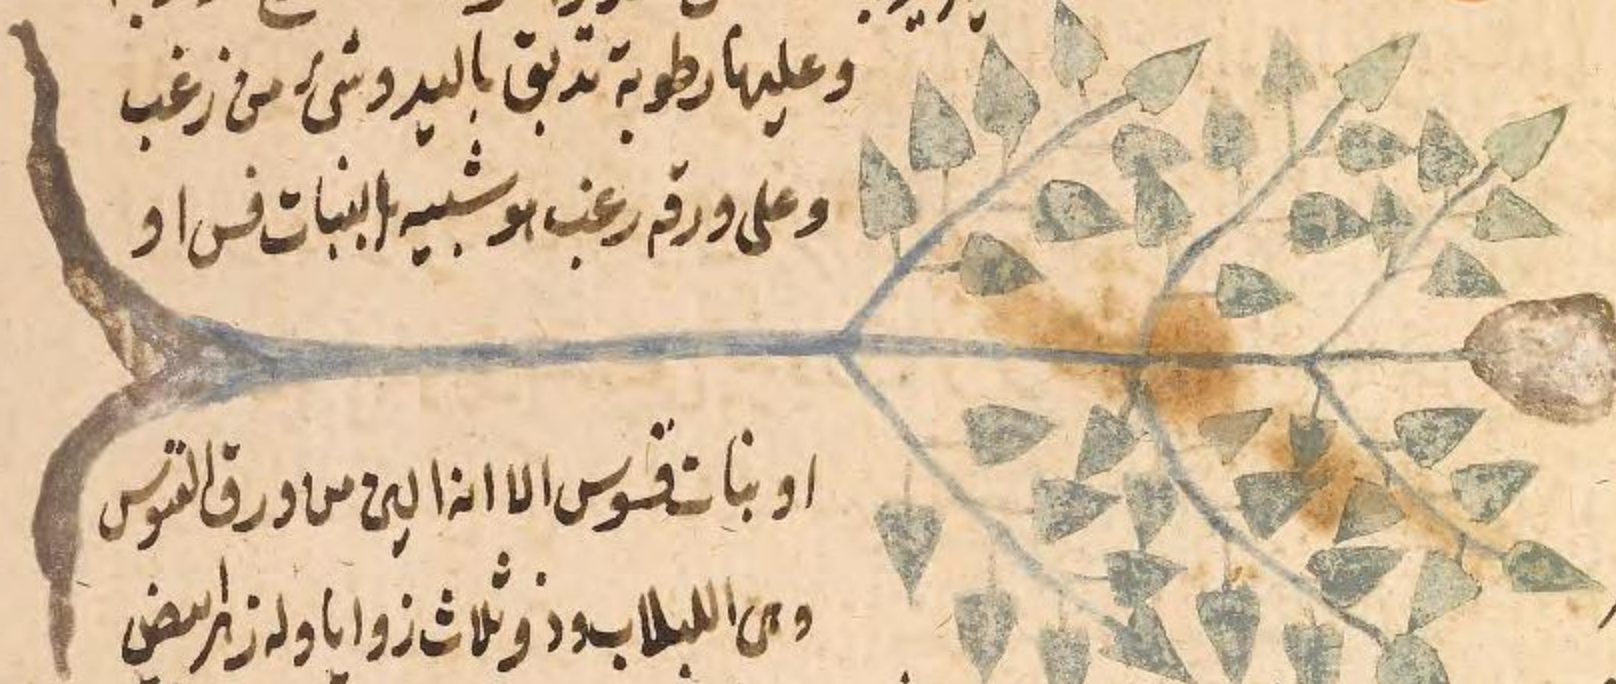 وعليها رطوبة تدبق باليد وشئ من زغب
وعلى ورقه زغب هو شبيه بالنبات قس او
او بنات قسوس الا انه الين من ورق القسوس
وهى اللبلاب وذو ثلاث زوايا وله زهر ابيض